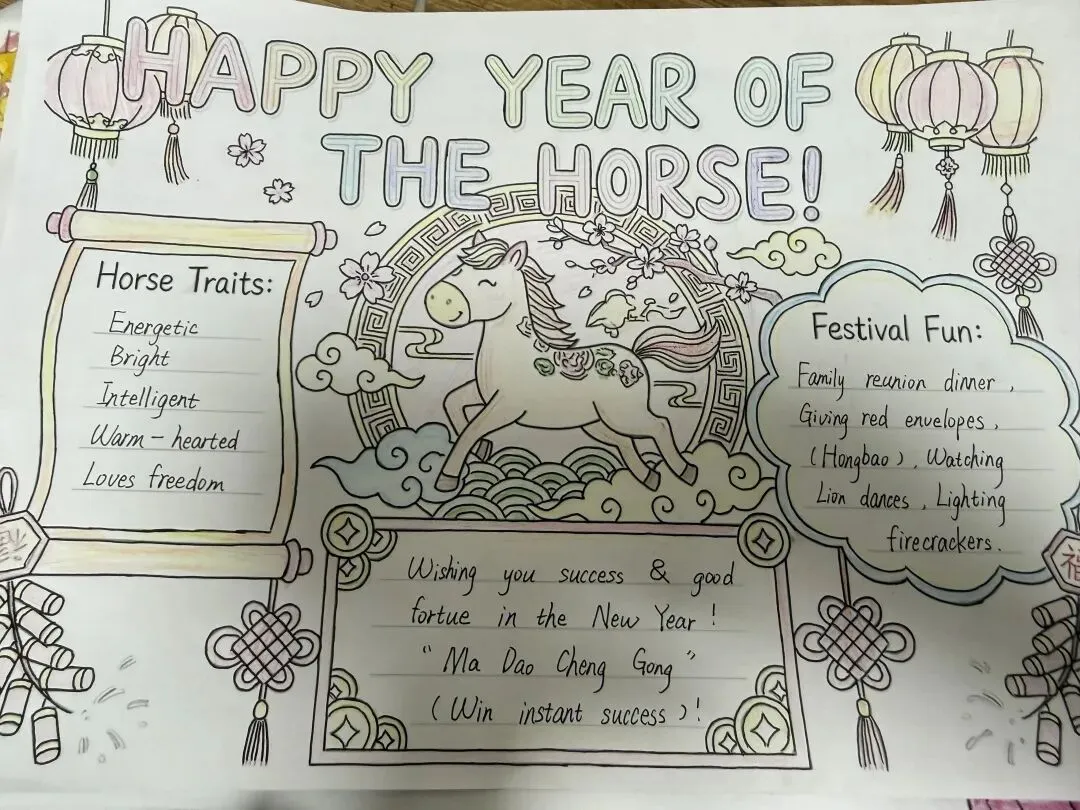 HAPPY YEAR OF
THE HORSE!
Horse Traits:
Energetic
Bright
Intelligent
Warm-hearted
Loves freedom
Festival Fun:
Family reunion dinner,
Giving red envelopes,
(Hongbao), Watching
Lion dances, Lighting
firecrackers.
Wishing you success & good
fortue in the New Year!
"Ma Dao Cheng Gong"
(Win instant success)!
福